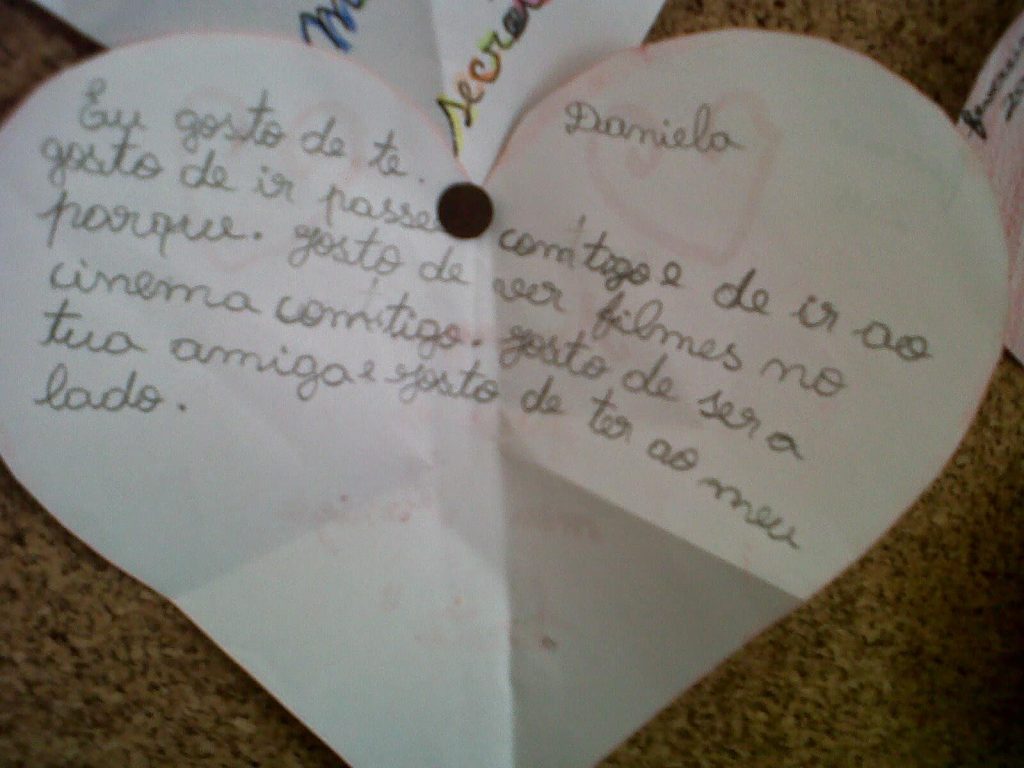 secre
Daniela
Eu gosto de te.
gosto de ir passe comtigo e de ir ao
parque. gosto de ver filmes no
cinema comtigo. gosto de ser a
tua amiga e gosto de ter ao meu
lado.